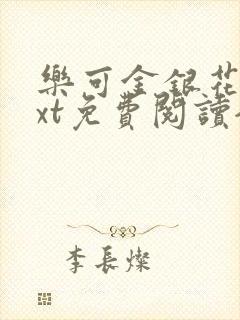 樂可金銀花
xt免費閱讀
李長燦